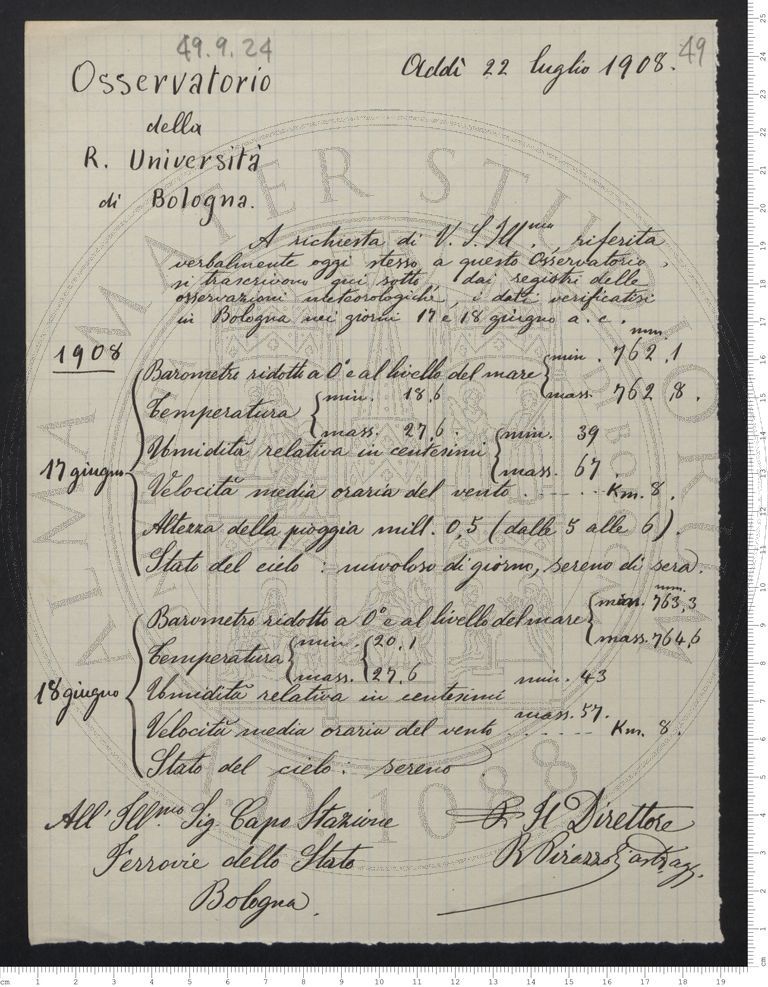 49.9.24
49
Osservatorio
della
R. Università
di Bologna.
Addì 22 luglio 1908.
A richiesta di V. S. Ill.ma, riferita
verbalmente oggi stesso a questo Osservatorio,
si trascrivono qui sotto, dai registri delle
osservazioni meteorologiche, i dati verificatisi
in Bologna nei giorni 17 e 18 giugno a. c.
1908
17 giugno
mm.
Barometro ridotto a 0° e al livello del mare min. 762,1
mass. 762,8.
Temperatura min. 18,6
mass. 27,6.
Umidità relativa in centesimi min. 39
mass. 67.
Velocità media oraria del vento . . . . . Km. 8.
Altezza della pioggia mill. 0,5 (dalle 5 alle 6).
Stato del cielo : nuvoloso di giorno, sereno di sera.
18 giugno
mm.
Barometro ridotto a 0° e al livello del mare min. 763,3
mass. 764,6
Temperatura min. 20,1
mass. 27,6
Umidità relativa in centesimi min. 43
mass. 57.
Velocità media oraria del vento . . . . . . Km. 8.
Stato del cielo : sereno
All' Ill.mo Sig. Capo Stazione
Ferrovie dello Stato
Bologna.
Il Direttore
ALMA MATER STUDIORUM
A.D. 1088
cm 1 2 3 4 5 6 7 8 9 10 11 12 13 14 15 16 17 18 19
cm 1 2 3 4 5 6 7 8 9 10 11 12 13 14 15 16 17 18 19 20 21 22 23 24 25